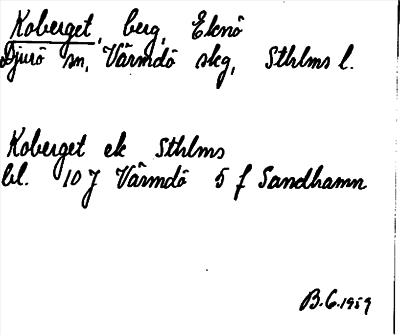 Koberget, berg, Eknö
Djurö sn, Värmdö skg, Sthlms l.
Koberget ek Sthlms
bl. 10 J Värmdö 5 f Sandhamn
B.G. 1959